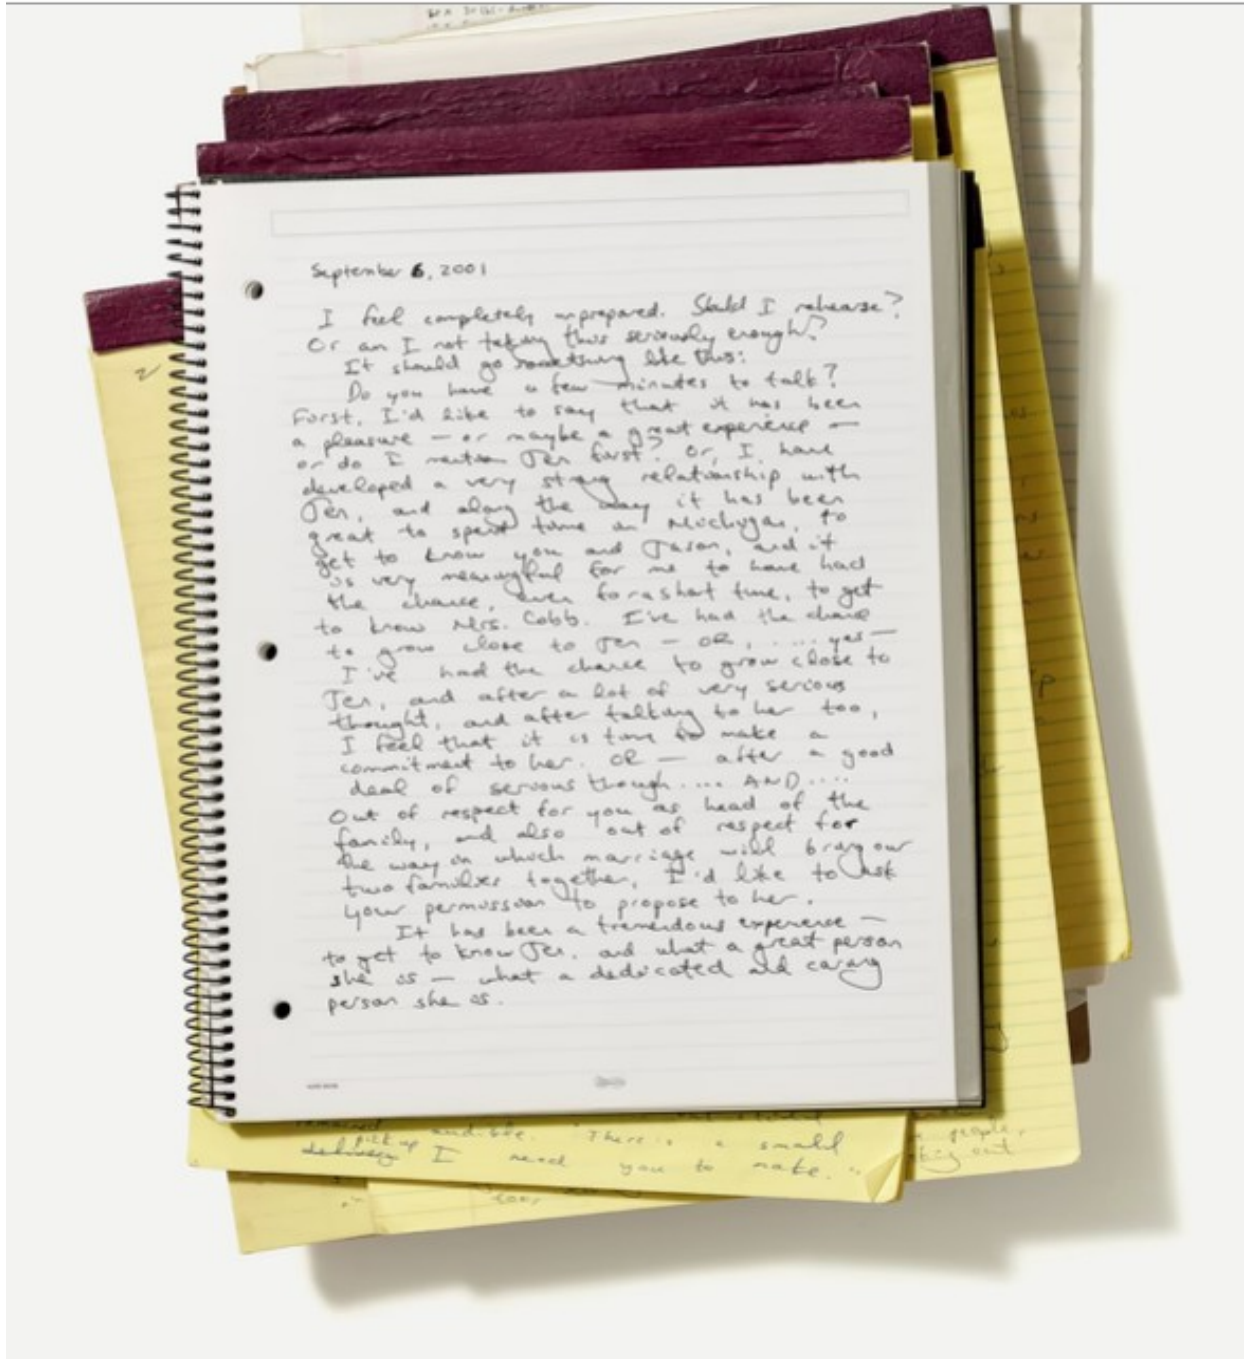 September 6, 2001
I feel completely unprepared. Should I rehearse?
Or am I not taking this seriously enough?
It should go something like this:
Do you have a few minutes to talk?
First, I'd like to say that it has been
a pleasure — or maybe a great experience —
or do I mention Jen first? Or, I have
developed a very strong relationship with
Jen, and along the way it has been
great to spend time in Michigan, to
get to know you and Jason, and it
is very meaningful for me to have had
the chance, even for a short time, to get
to know Mrs. Cobb. I've had the chance
to grow close to Jen — OR, .... yes —
I've had the chance to grow close to
Jen, and after a lot of very serious
thought, and after talking to her too,
I feel that it is time to make a
commitment to her. OR — after a good
deal of serious though .... AND ....
Out of respect for you as head of the
family, and also out of respect for
the way in which marriage will bring our
two families together, I'd like to ask
your permission to propose to her.
It has been a tremendous experience —
to get to know Jen, and what a great person
she is — what a dedicated and caring
person she is.
remained audible. "There is a small
pick up
delivery I need you to make."
people,
out